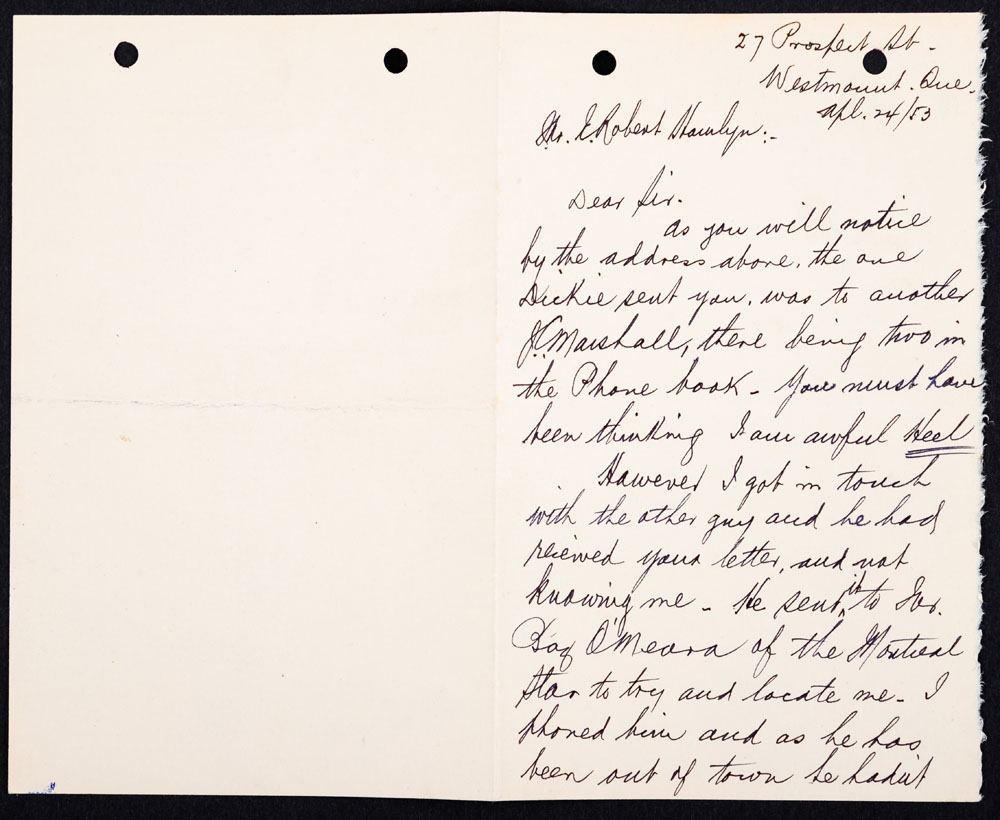 27 Prospect St.
Westmount. Que.
Apl. 24/53
Mr. E. Robert Hamlyn:-
Dear Sir.
As you will notice
by the address above, the one
Dickie sent you, was to another
J.C. Marshall, there being two in
the Phone book - You must have
been thinking I am awful Heel
However I got in touch
with the other guy and he had
recieved your letter, and not
knowing me - He sent it to Mr.
Baz O'Meara of the Montreal
Star to try and locate me - I
phoned him and as he has
been out of town he hadn't